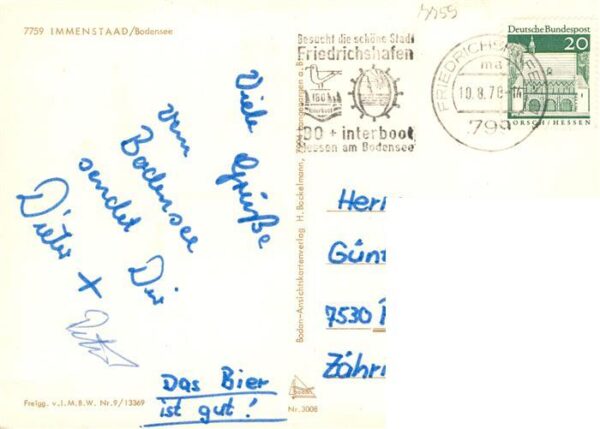 7759 IMMENSTAAD/Bodensee
Viele Grüße
vom
Bodensee
sendet Dir
Dieter +
Das Bier
ist gut!
Freigg. v. I.M.B.W. Nr. 9/13369
Bodan-Ansichtskartenverlag H. Bockelmann,
Nr. 3008
Besucht die schöne Stadt
Friedrichshafen
IBO
interboot
IBO + interboot
Messen am Bodensee
FRIEDRICHSHAFEN
ma
10.8.70
799
Deutsche Bundespost
20
LORSCH/HESSEN
Herr
Günt
7530
Zähri